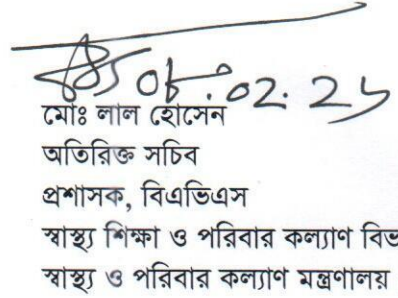 ০৮.০২.২৬
মোঃ লাল হোসেন
অতিরিক্ত সচিব
প্রশাসক, বিএভিএস
স্বাস্থ্য শিক্ষা ও পরিবার কল্যাণ বিভ
স্বাস্থ্য ও পরিবার কল্যাণ মন্ত্রণালয়